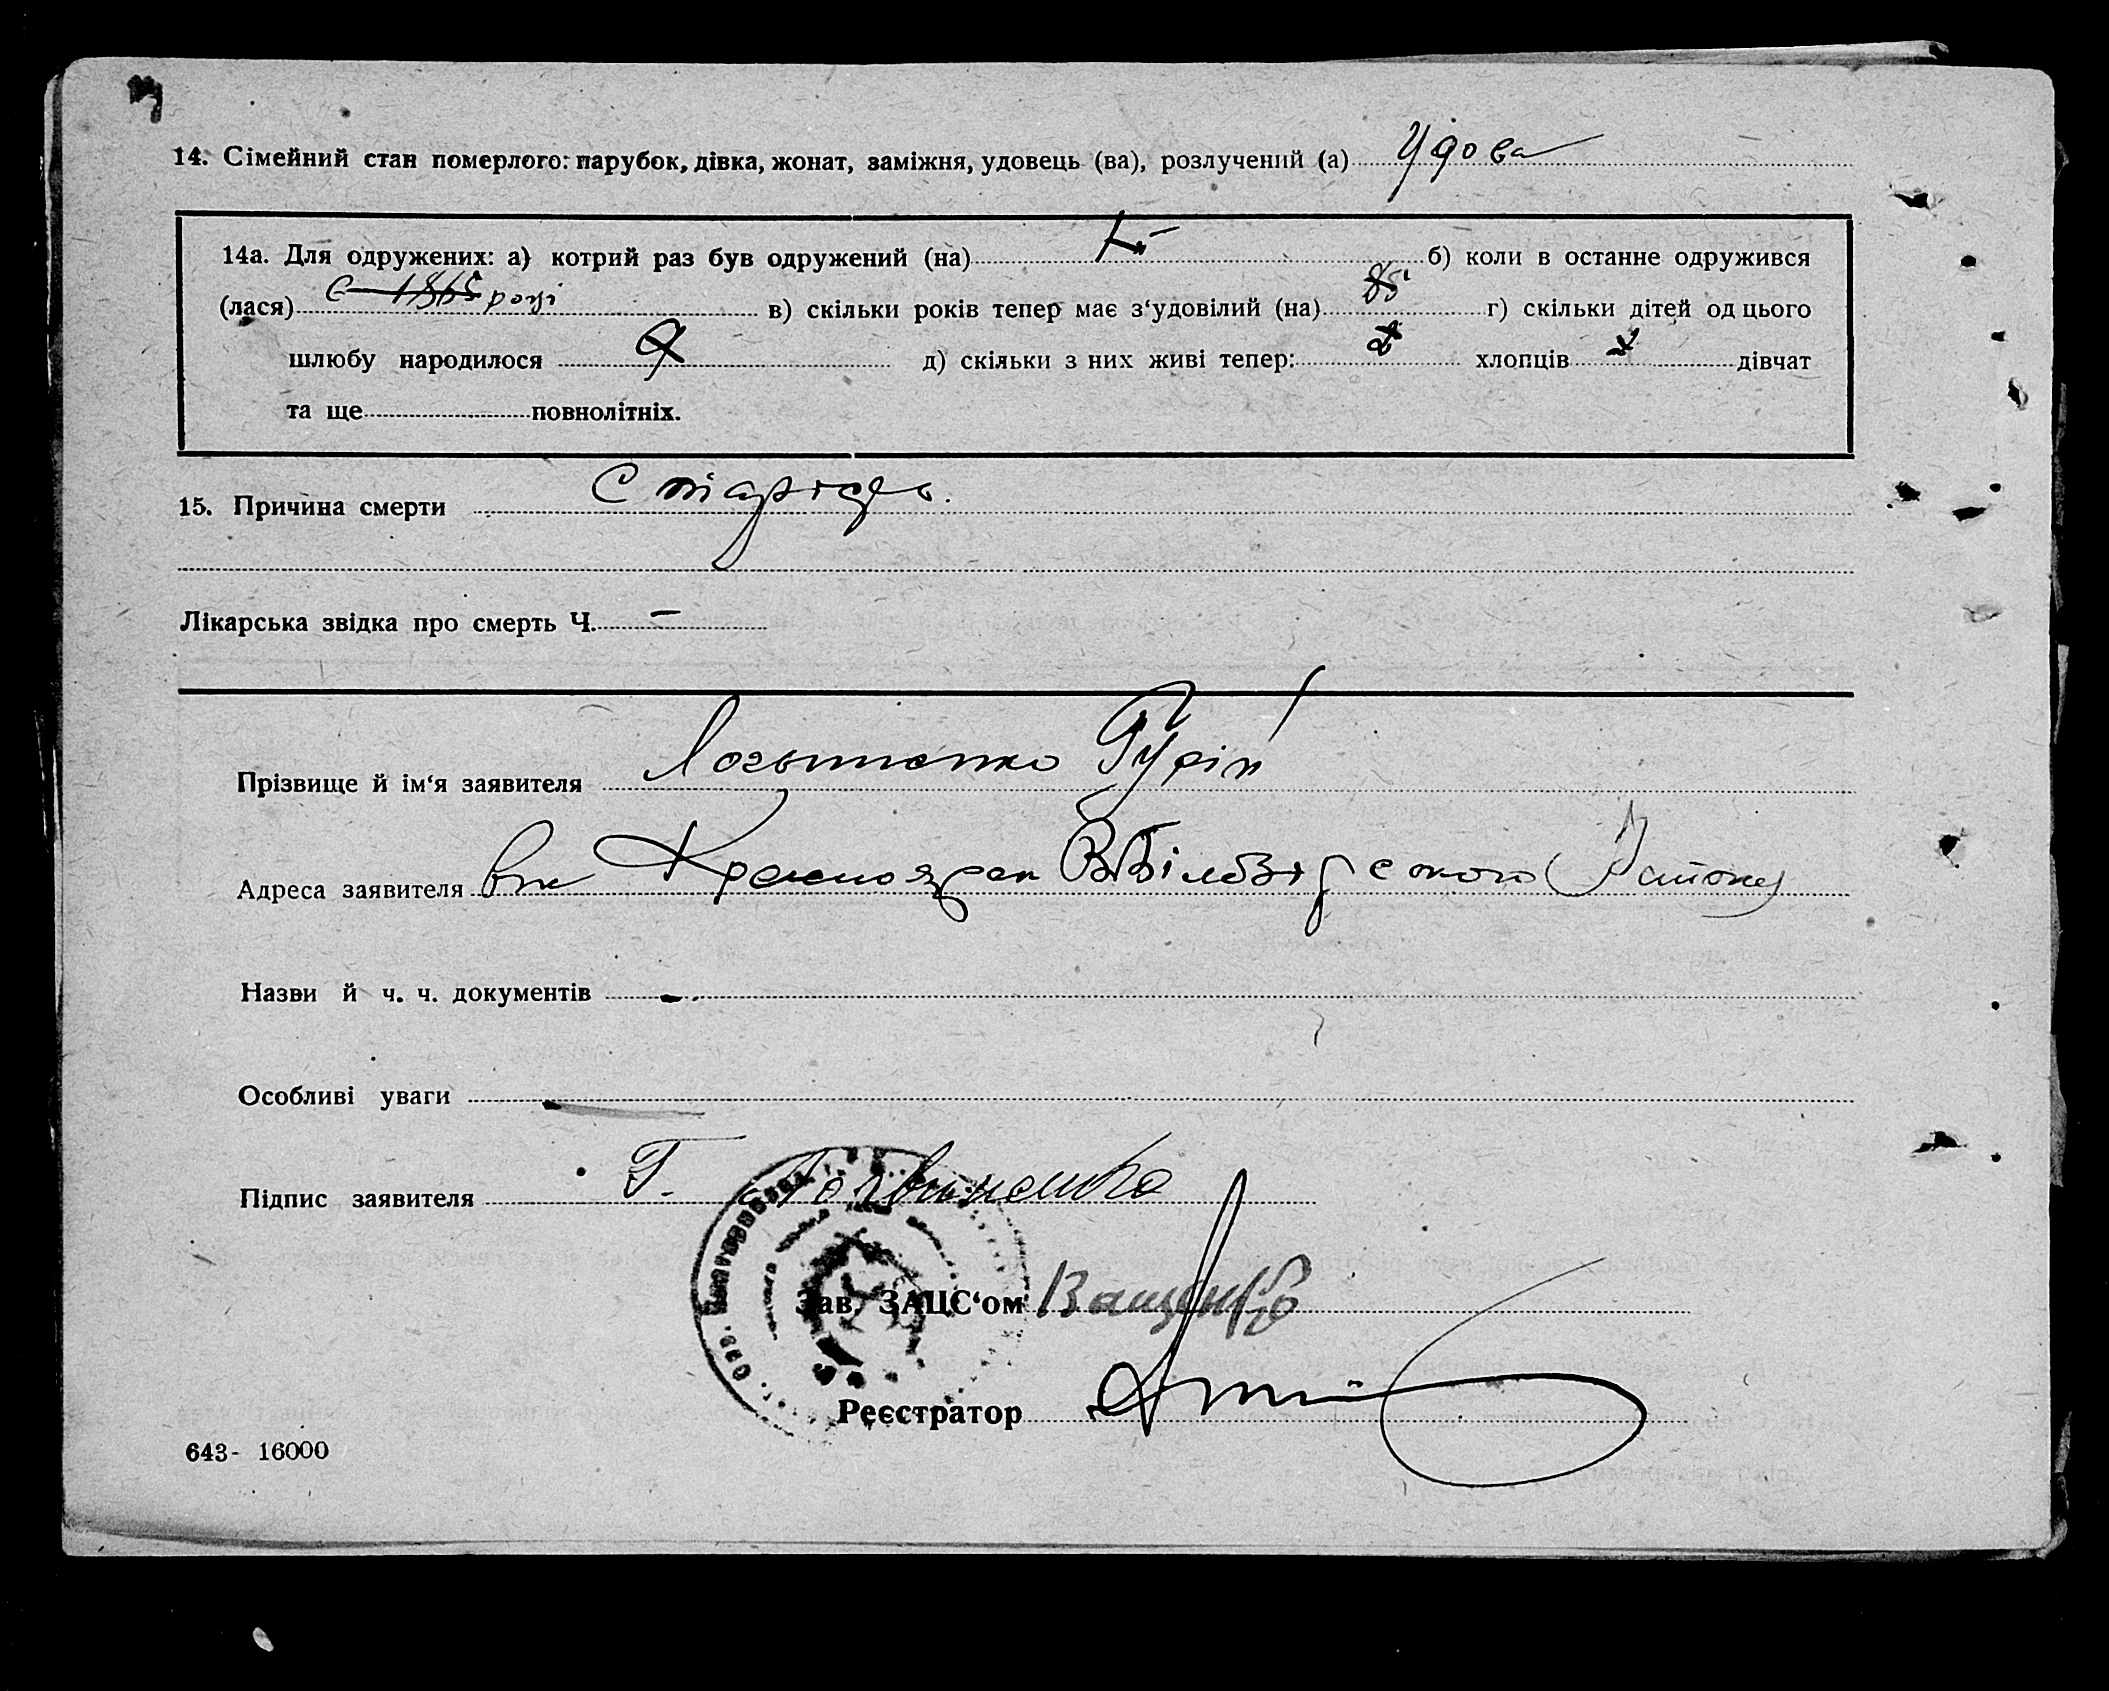 14. Сімейний стан померлого: парубок, дівка, жонат, заміжня, удовець (ва), розлучений (а) Удова
14а. Для одружених: а) котрий раз був одружений (на) б) коли в останне одружився
(лася) 1865 році в) скільки років тепер має з‘удовілий (на) 85 г) скільки дітей од цього
шлюбу народилося д) скільки з них живі тепер: хлопців дівчат
та ще повнолітніх.
15. Причина смерти Старість.
Лікарська звідка про смерть Ч. –
Прізвище й ім‘я заявителя Гурій
Адреса заявителя Району
Назви й ч. ч. документів -
Особливі уваги -
Підпис заявителя Г.
Зав. ЗАЦС‘ом Ващенко
Реєстратор
643- 16000